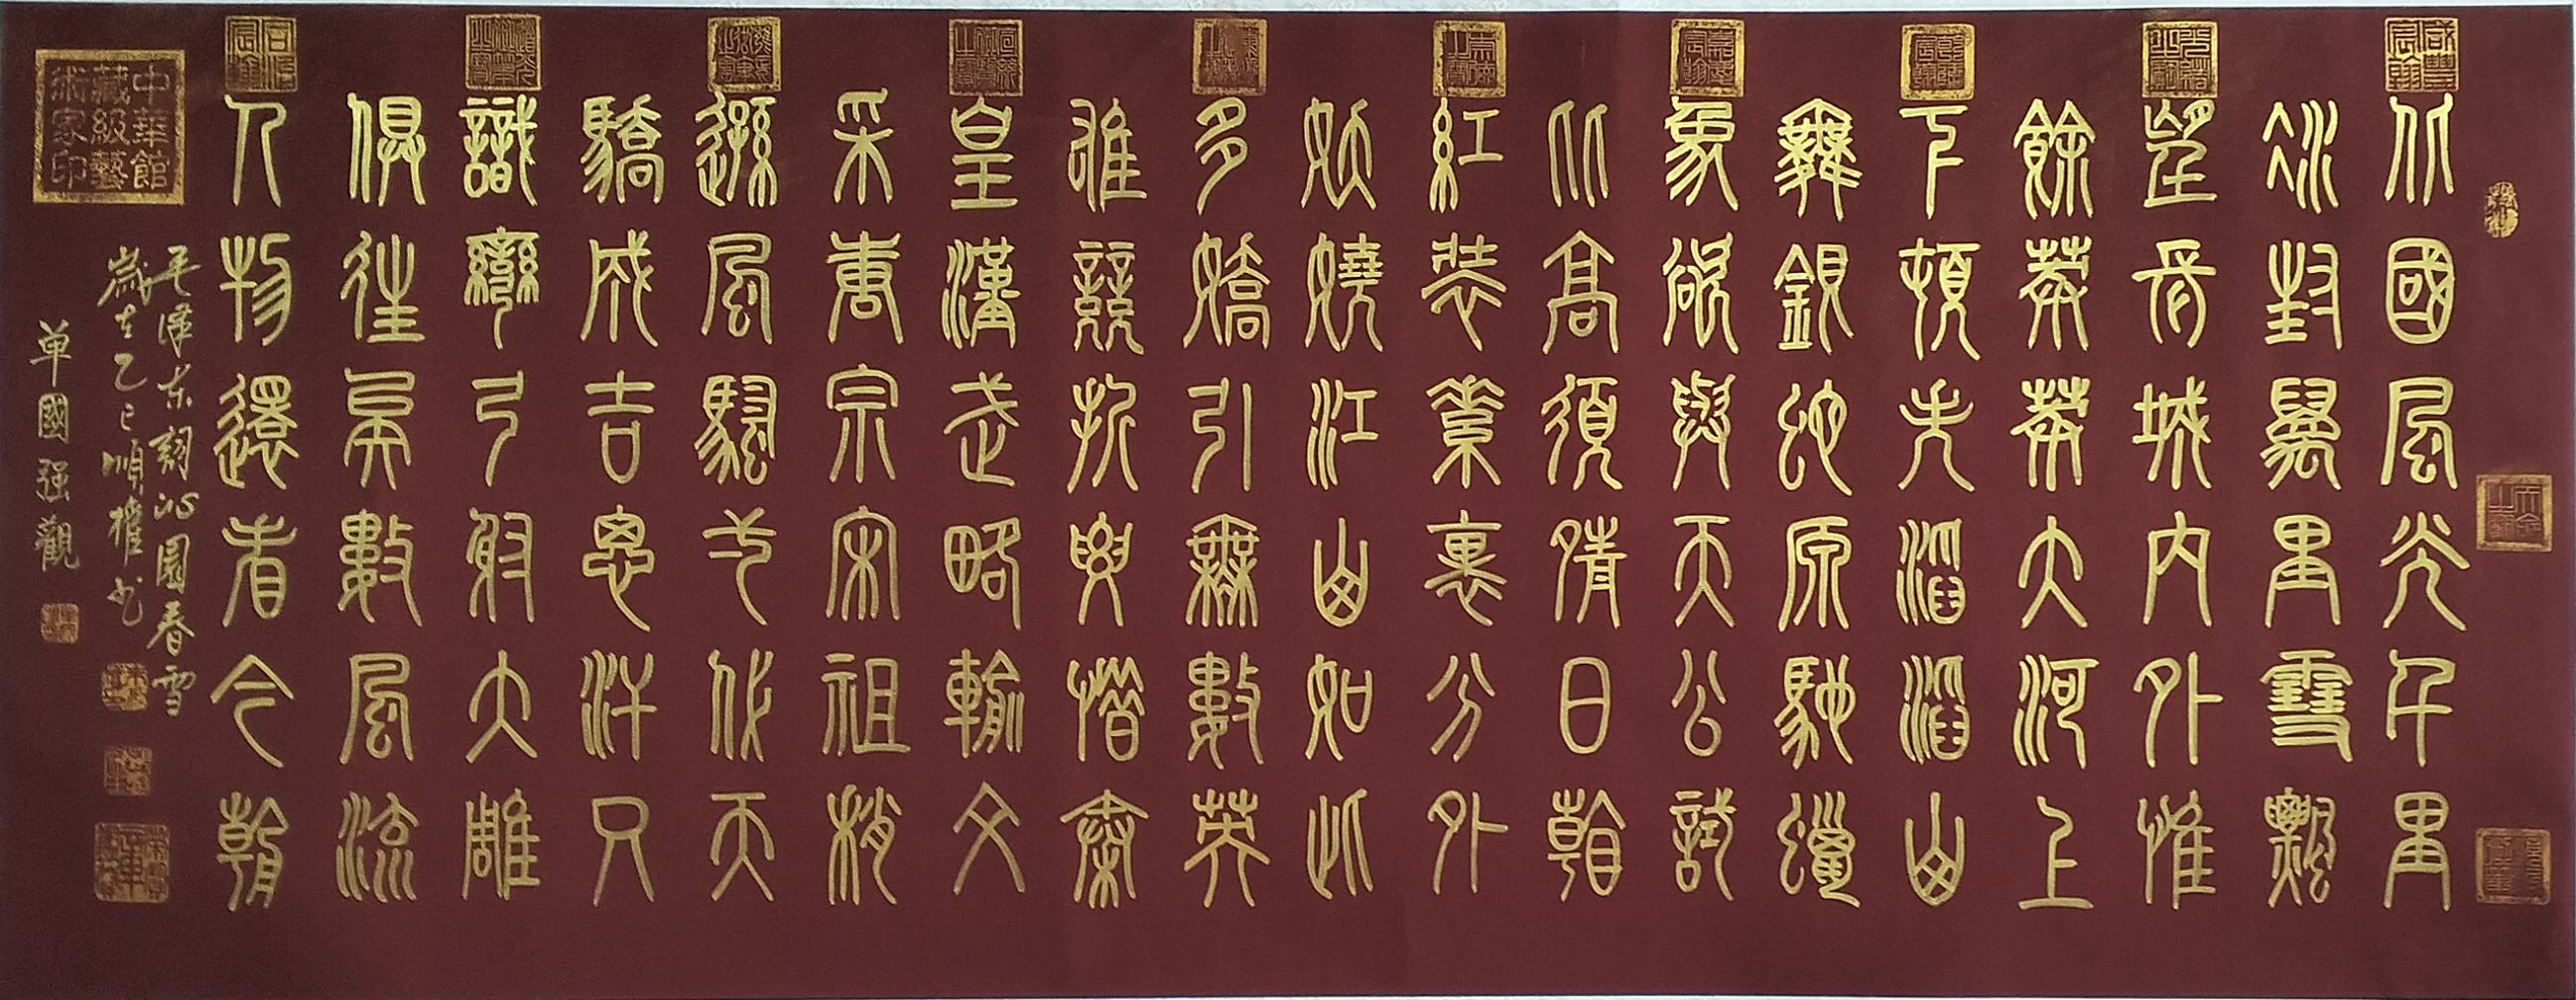 北國風光千里
冰封萬里雪飄
望長城內外惟
餘莽莽大河上
下頓失滔滔山
舞銀蛇原馳蠟
象欲與天公試
比高須晴日看
紅裝素裹分外
妖嬈江山如此
多嬌引無數英
雄競折腰惜秦
皇漢武略輸文
采唐宗宋祖稍
遜風騷弌代天
驕成吉思汗只
識彎弓射大雕
俱往矣數風流
人物還看今朝
毛澤东詞沁園春雪
歲在乙巳順權书
单國强觀
中華館
藏級藝
術家印